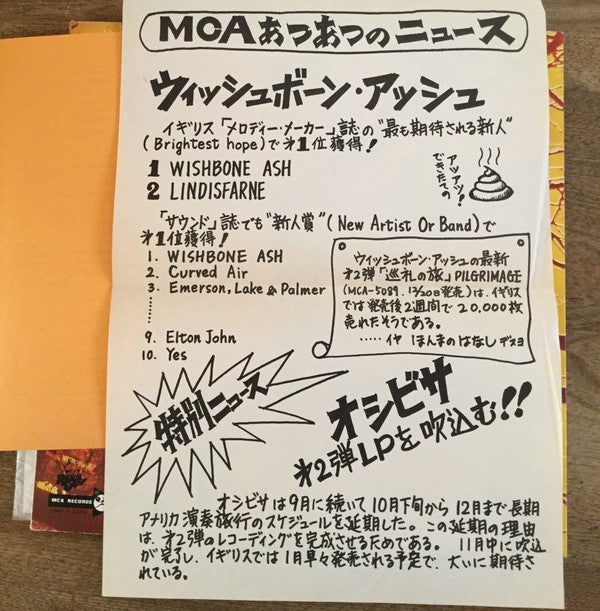 MCAあつあつのニュース
ウィッシュボーン・アッシュ
イギリス「メロディー・メーカー」誌の"最も期待される新人"
(Brightest hope)で才1位獲得!
1 WISHBONE ASH
2 LINDISFARNE
アツアツ!
できたての
「サウンド」誌でも"新人賞"(New Artist Or Band)で
才1位獲得!
1. WISHBONE ASH
2. Curved Air
3. Emerson, Lake & Palmer
⋮
9. Elton John
10. Yes
ウィッシュボーン・アッシュの最新
才2弾「巡礼の旅」PILGRIMAGE
(MCA-5089. 12/20日発売)は、イギリス
では発売後2週間で20,000枚
売れたそうである。
‥‥‥イヤ ほんまのはなし デスヨ
特別ニュース
オシビサ
才2弾LPを吹込む!!
オシビサは9月に続いて10月下旬から12月まで長期
アメリカ演奏旅行のスケジュールを延期した。この延期の理由
は、才2弾のレコーディングを完成させるためである。11月中に吹込
が完了し、イギリスでは1月早々発売される予定で、大いに期待さ
れている。
MCA RECORDS